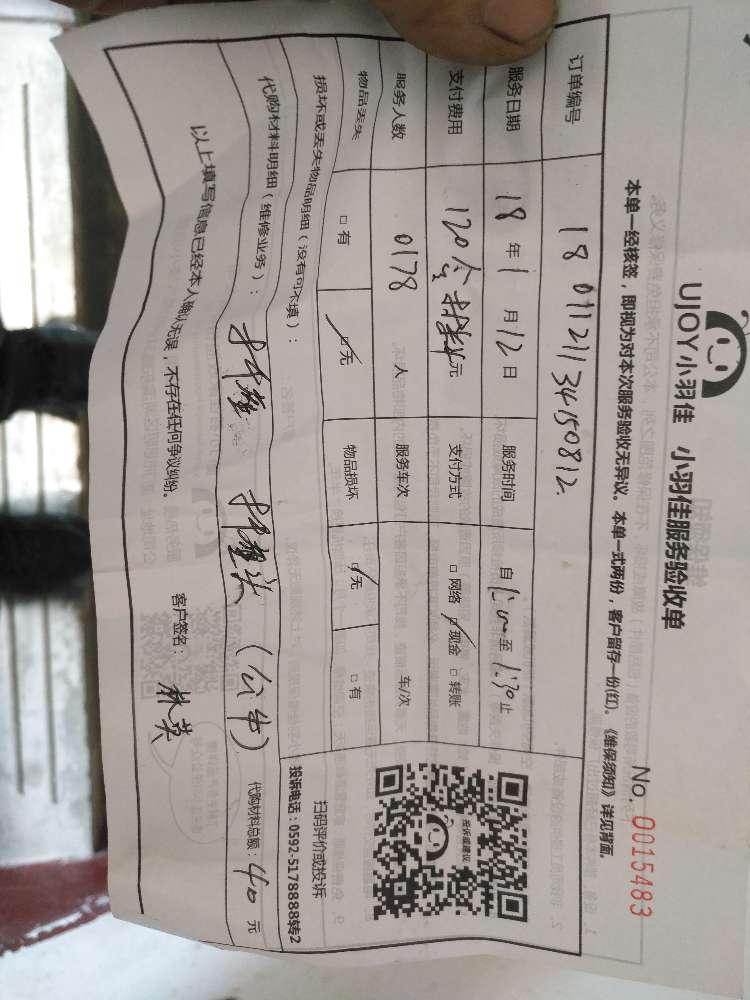 UJOY小羽佳 小羽佳服务验收单
No. 0015483
本单一经核签，即视为对本次服务验收无异议。本单一式两份，客户留存一份(红)。《维保须知》详见背面。
订单编号 18 01121134150812
服务日期 18 年 1 月 12 日 服务时间 自 至 1:30 止
支付费用 120 元 支付方式 □ 网络 ☑ 现金 □ 转账
服务人数 0178 人 服务车次 车/次
物品丢失 □ 有 ☑ 无 物品损坏 ☑ 无 □ 有
投诉或建议
扫码评价或投诉
投诉电话：0592-5178888转2
损坏或丢失物品明细（没有可不填）：
代购材料明细（维修业务）： 代购材料总额：40 元
以上填写信息已经本人确认无误，不存在任何争议纠纷。 客户签名： 林英